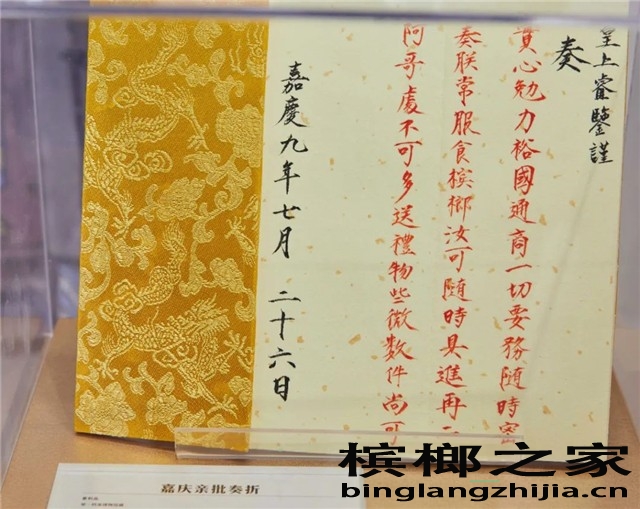 呈上睿鑒謹
奏
實心勉力裕國通商一切要務随時密
奏朕常服食槟榔汝可随時具進再二
阿哥處不可多送禮物些微數件尚可
嘉慶九年七月 二十六日
嘉庆亲批奏折
槟榔之家
binglangzhijia.cn